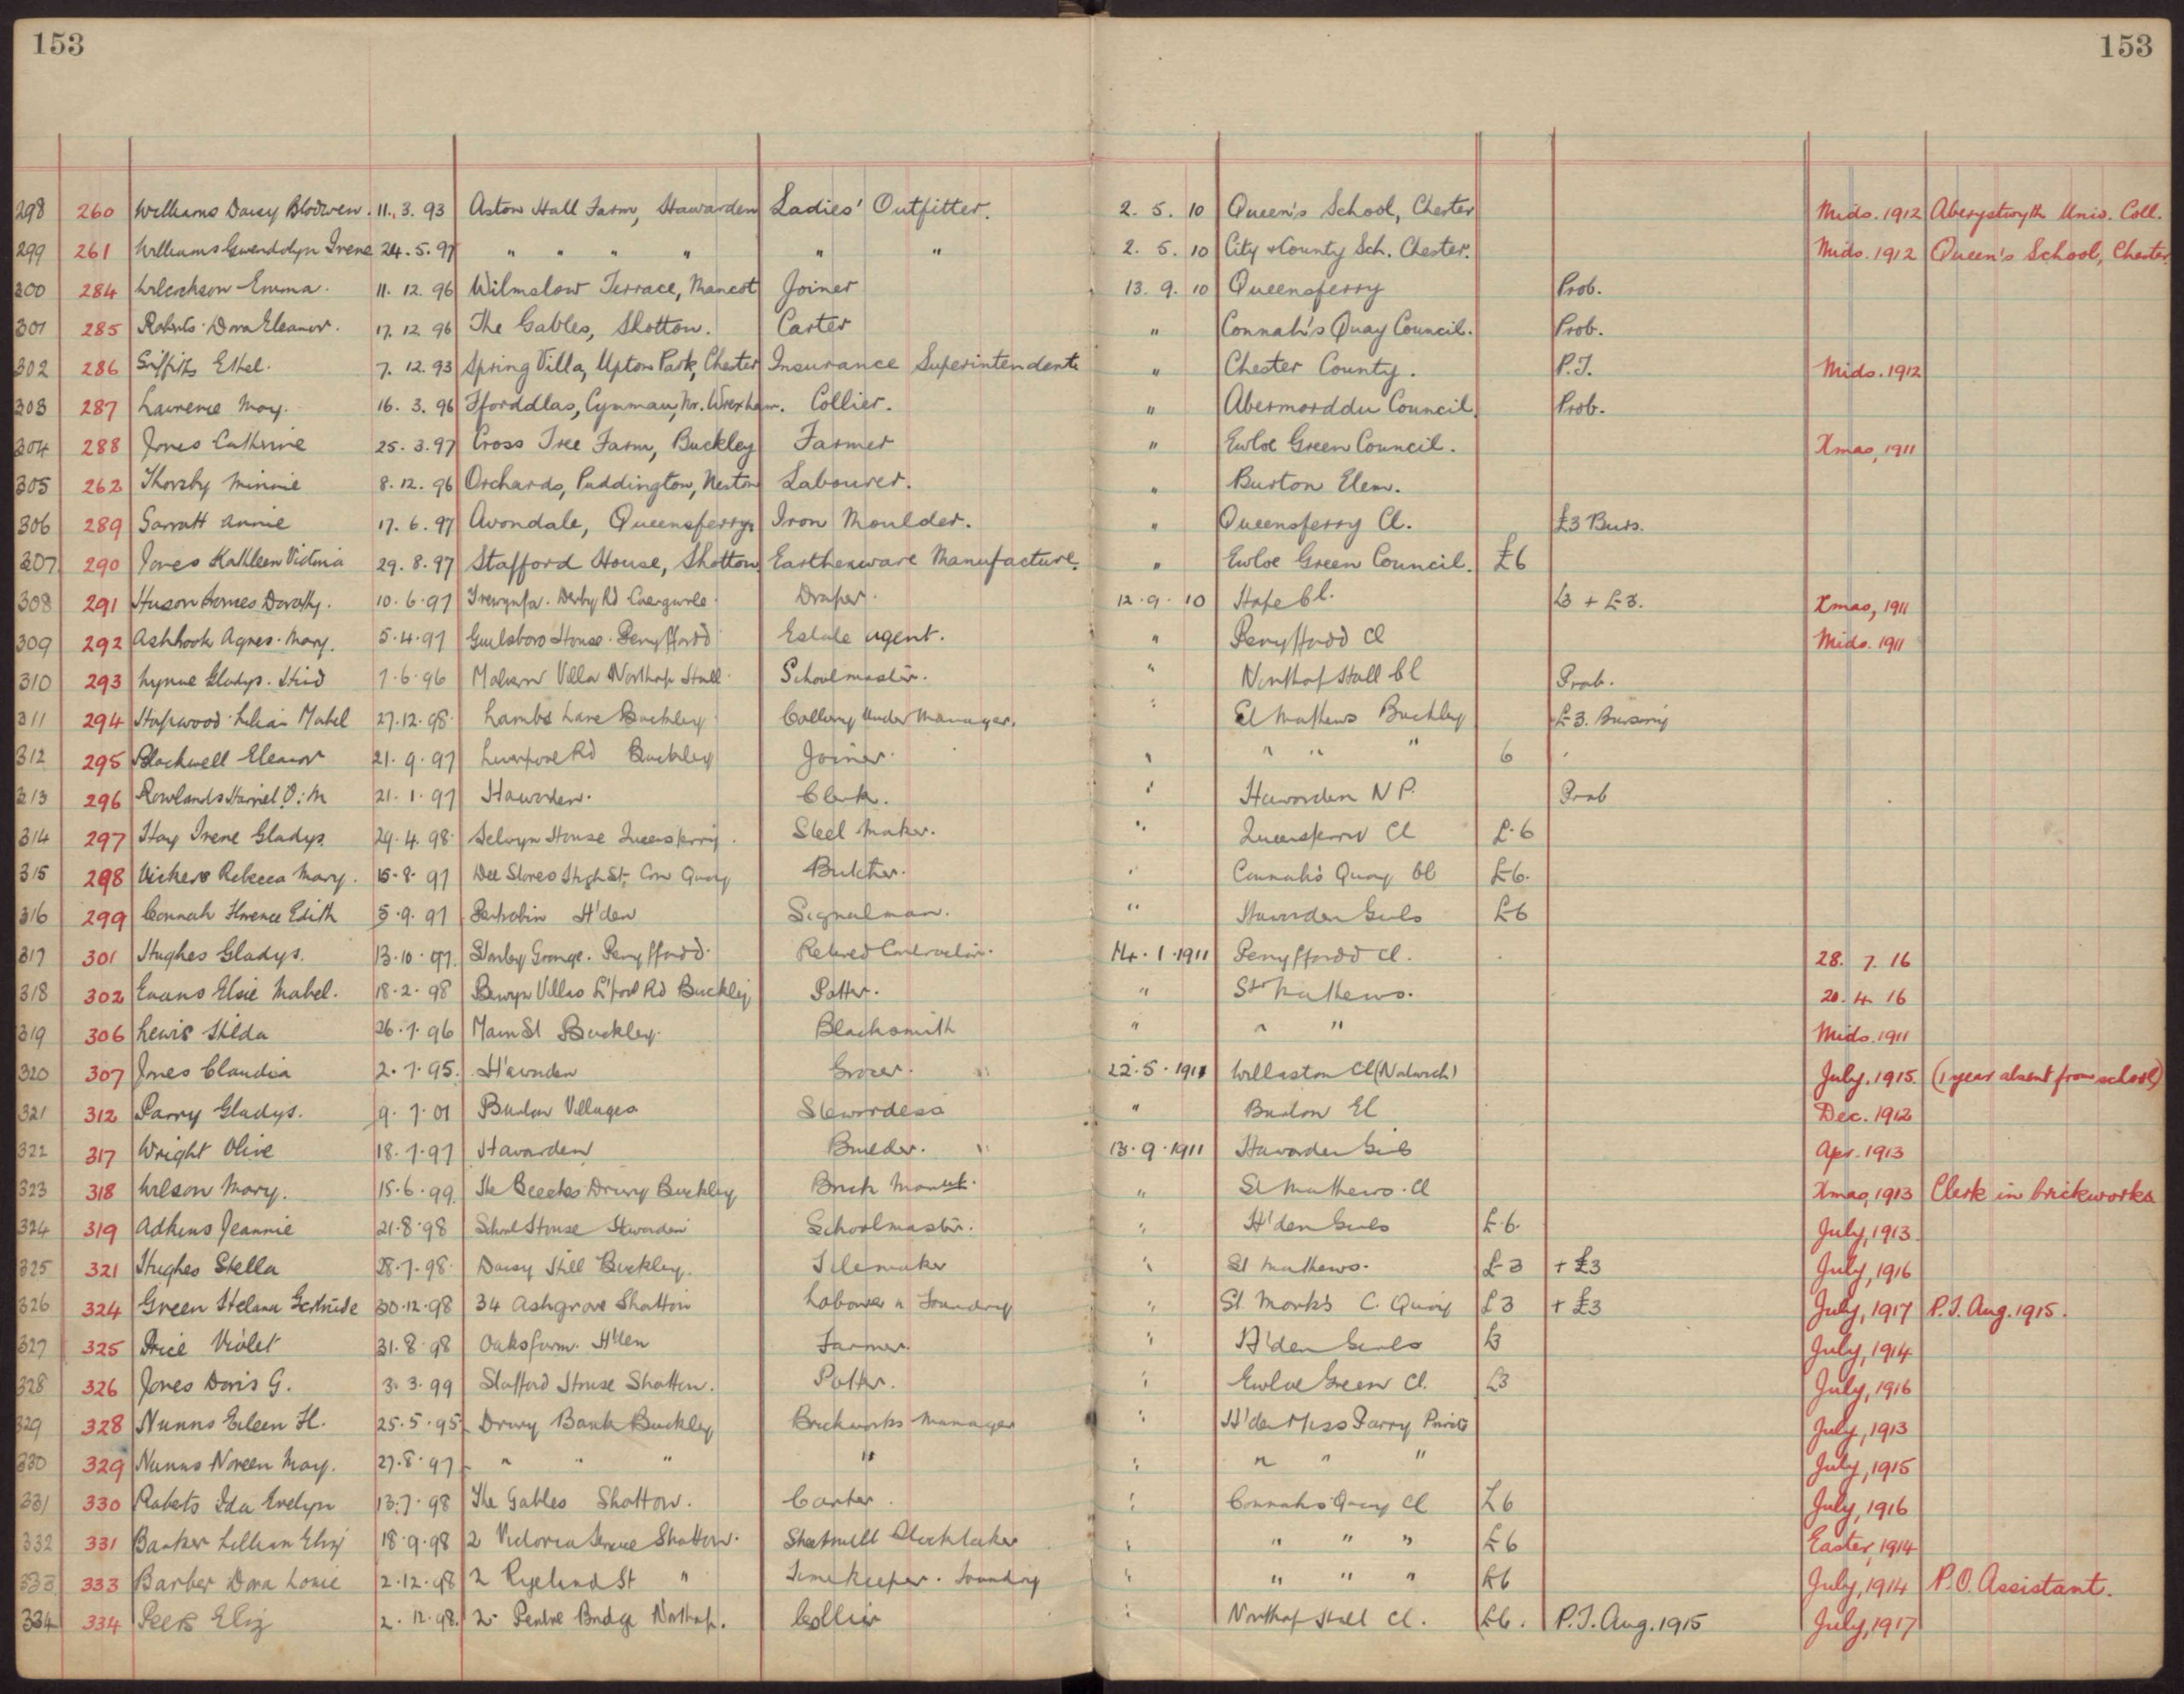 153 153
298 260 Williams Daisy Blodwen. 11. 3. 93 Aston Hall Farm, Hawarden Ladies' Outfitter. 2. 5. 10 Queen's School, Chester Mids. 1912 Aberystwyth Univ. Coll.
299 261 Williams Gwendolyn Irene 24. 5. 97 " " " " " " 2. 5. 10 City & County Sch. Chester. Mids. 1912 Queen's School, Chester.
300 284 Emma. 11. 12. 96 Wilmslow Terrace, Mancot Joiner 13. 9. 10 Queensferry Prob.
301 285 Roberts Dora Eleanor. 17. 12. 96 The Gables, Shotton. Carter " Connah's Quay Council. Prob.
302 286 Griffiths Ethel. 7. 12. 93 Spring Villa, Upton Park, Chester Insurance Superintendent " Chester County. P.T. Mids. 1912
303 287 Lawrence May. 16. 3. 96 Fforddlas, Cynmau, Nr. Wrexham. Collier. " Abermorddu Council. Prob.
304 288 Jones Catherine 25. 3. 97 Cross Tree Farm, Buckley Farmer " Ewloe Green Council. Xmas, 1911
305 262 Thorsby Minnie 8. 12. 96 Orchards, Puddington, Neston Labourer. " Burton Elem.
306 289 Garratt Annie 17. 6. 97 Avondale, Queensferry. Iron Moulder. " Queensferry Cl. £3 Burs.
307 290 Jones Kathleen Victoria 29. 8. 97 Stafford House, Shotton. Earthenware Manufacture. " Ewloe Green Council. £6
308 291 Huson Frances Dorothy. 10. 6. 97 Derby Rd Caergwrle. Draper. 12. 9. 10 Hope Cl. £3 + £3. Xmas, 1911
309 292 Ashbrook Agnes Mary. 5. 4. 97 Guilsboro House. Penyffordd Estate agent. " Penyffordd Cl Mids. 1911
310 293 Lynne Gladys. Enid 7. 6. 96 Malvern Villa Northop Hall. Schoolmaster. " Northop Hall Cl Prob.
311 294 Hopwood Lilian Mabel 27. 12. 98. Lambs Lane Buckley Colliery Under Manager. " St Mathews Buckley £3. Bursary
312 295 Blackwell Eleanor 21. 9. 97 Liverpool Rd Buckley Joiner. " " " " 6
313 296 Rowlands Harriet. O. M 21. 1. 97 Hawarden. Clerk. " Hawarden N P. Prob
314 297 Hay Irene Gladys. 29. 4. 98. Selwyn House Queensferry. Steel Maker. " Queensferry Cl £6
315 298 Vickers Rebecca Mary. 15. 8. 97 Dee Stores High St. Con Quay Butcher. " Connah's Quay Cl £6.
316 299 Connah Florence Edith 5. 9. 97 Pentrobin H'den Signalman. " Hawarden Girls £6
317 301 Hughes Gladys. 13. 10. 97. Stanley Grange. Penyffordd. Retired Contractor. 14. 1. 1911 Penyffordd Cl. 28. 7. 16
318 302 Evans Elsie Mabel. 18. 2. 98 Berwyn Villas L'pool Rd Buckley Potter. " St Mathews. 20. 4. 16
319 306 Lewis Hilda 26. 7. 96 Main St Buckley. Blacksmith " " " Mids. 1911
320 307 Jones Claudia 2. 7. 95. H'warden Grocer. 22. 5. 1911 Willaston Cl (Nantwich) July. 1915. (1 year absent from school)
321 312 Parry Gladys. 9. 7. 01 Burton Villages Stewardess " Burton El Dec. 1912
322 317 Wright Olive 18. 7. 97 Hawarden Builder. 13. 9. 1911 Hawarden Girls Apr. 1913
323 318 Wilson Mary. 15. 6. 99. The Beeches Drury Buckley Brick Manuf. " St Mathews. Cl Xmas, 1913 Clerk in brickworks
324 319 Adkins Jeannie 21. 8. 98 School House Hawarden Schoolmaster. " H'den Girls £6. July, 1913.
325 321 Hughes Stella 28. 7. 98. Daisy Hill Buckley. Tilemaker " St Mathews. £3 + £3 July, 1916
326 324 Green Helena Gertrude 30. 12. 98 34 Ashgrove Shotton Labourer in Foundry " St. Mark's C. Quay £3 + £3 July, 1917 P.T. Aug. 1915.
327 325 Price Violet 31. 8. 98 Oaksfarm. H'den Farmer. " H'den Girls £3 July, 1914
328 326 Jones Doris G. 3. 3. 99 Stafford House Shotton. Potter. " Ewloe Green Cl. £3 July, 1916
329 328 Nunns Eileen H. 25. 5. 95 Drury Bank Buckley Brickworks Manager " H'den Miss Parry Private July, 1913
330 329 Nunns Noreen May. 27. 8. 97 " " " " " " " " July, 1915
331 330 Roberts Ida Evelyn 13. 7. 98 The Gables Shotton. Carter. " Connahs Quay Cl £6 July, 1916
332 331 Barker Lillian Eliz 18. 9. 98 2 Victoria Terrace Shotton. Sheetmill Stocktaker " " " " £6 Easter, 1914
333 333 Barber Dora Louie 2. 12. 98 2 Ryeland St " Timekeeper. Foundry " " " " £6 July, 1914 P.O. Assistant.
334 334 Peers Eliz 2. 12. 98. 2 Pentre Bridge Northop. Collier " Northop Hall Cl. £6. P.T. Aug. 1915 July, 1917